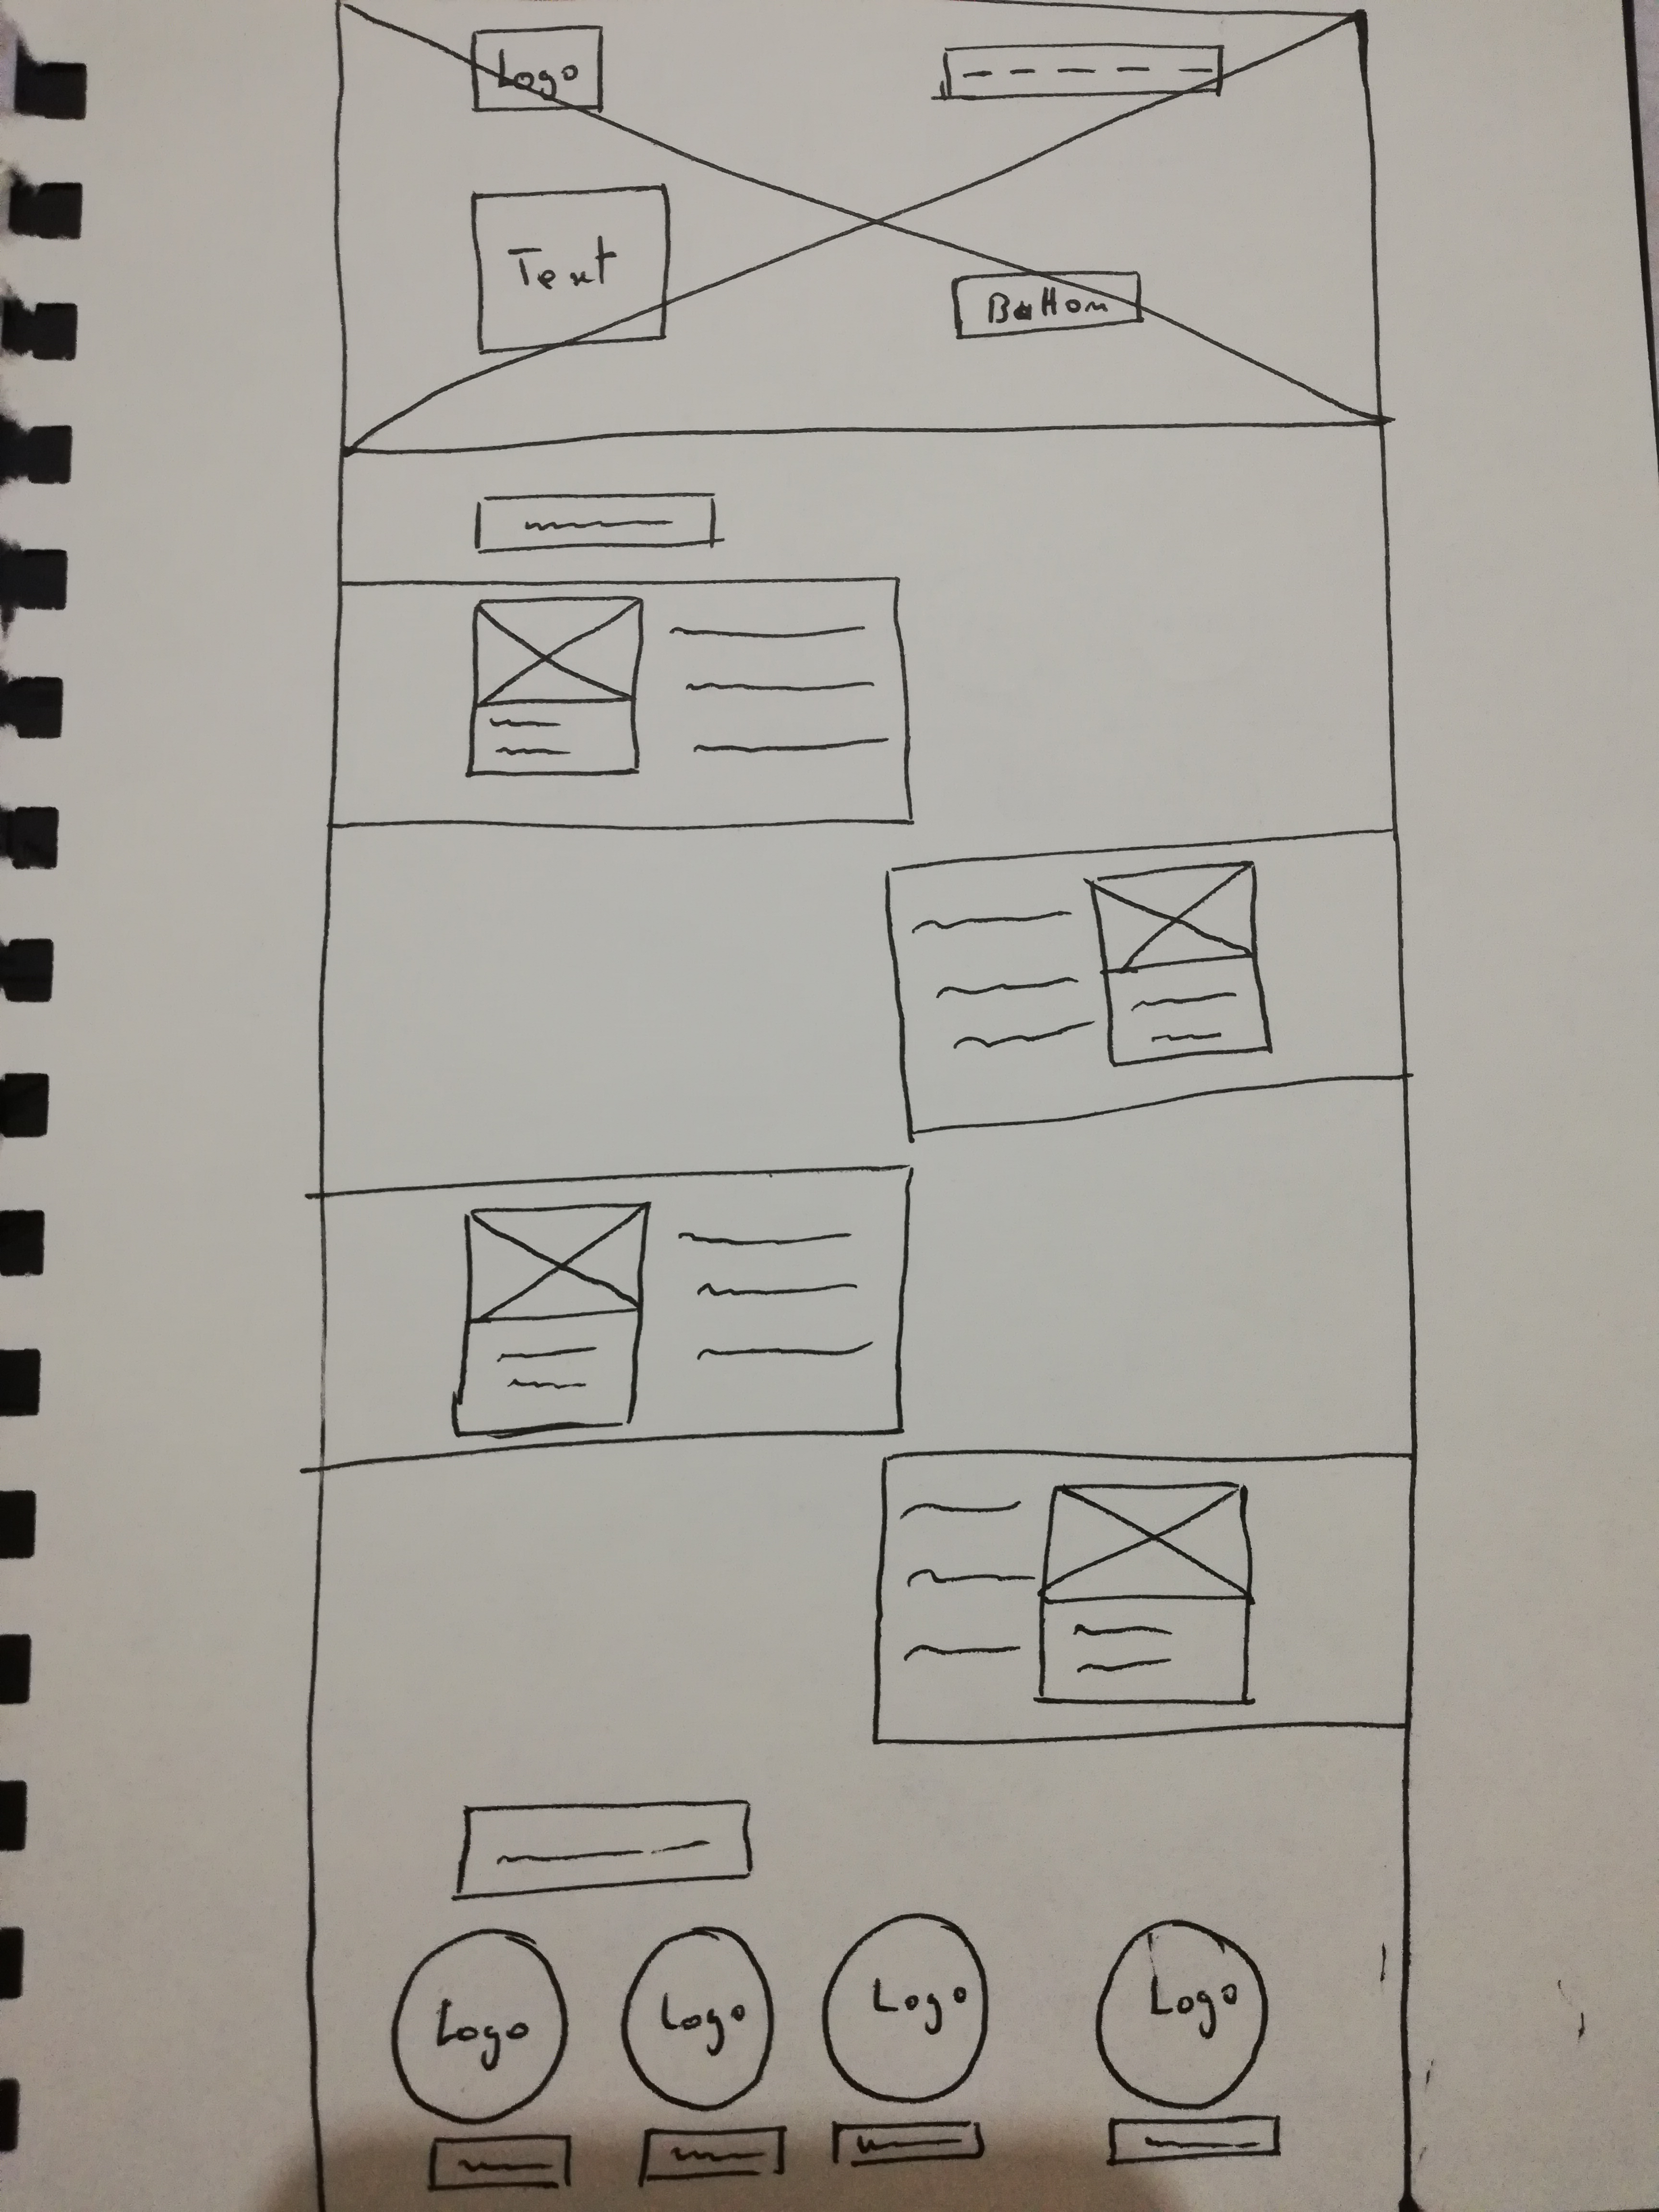 Logo
Text
Button
Logo
Logo
Logo
Logo